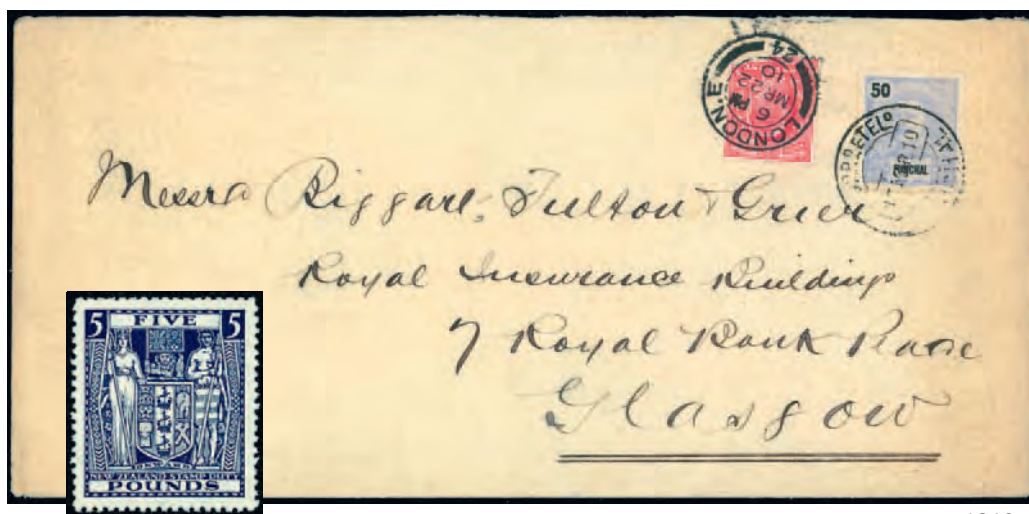 LONDON. E
6 PM
MR 22
10
24
50
FUNCHAL
Messrs Biggart, Fulton & Grier
Royal Insurance Buildings
7 Royal Bank Place
Glasgow
5 FIVE 5
NEW ZEALAND STAMP DUTY
POUNDS